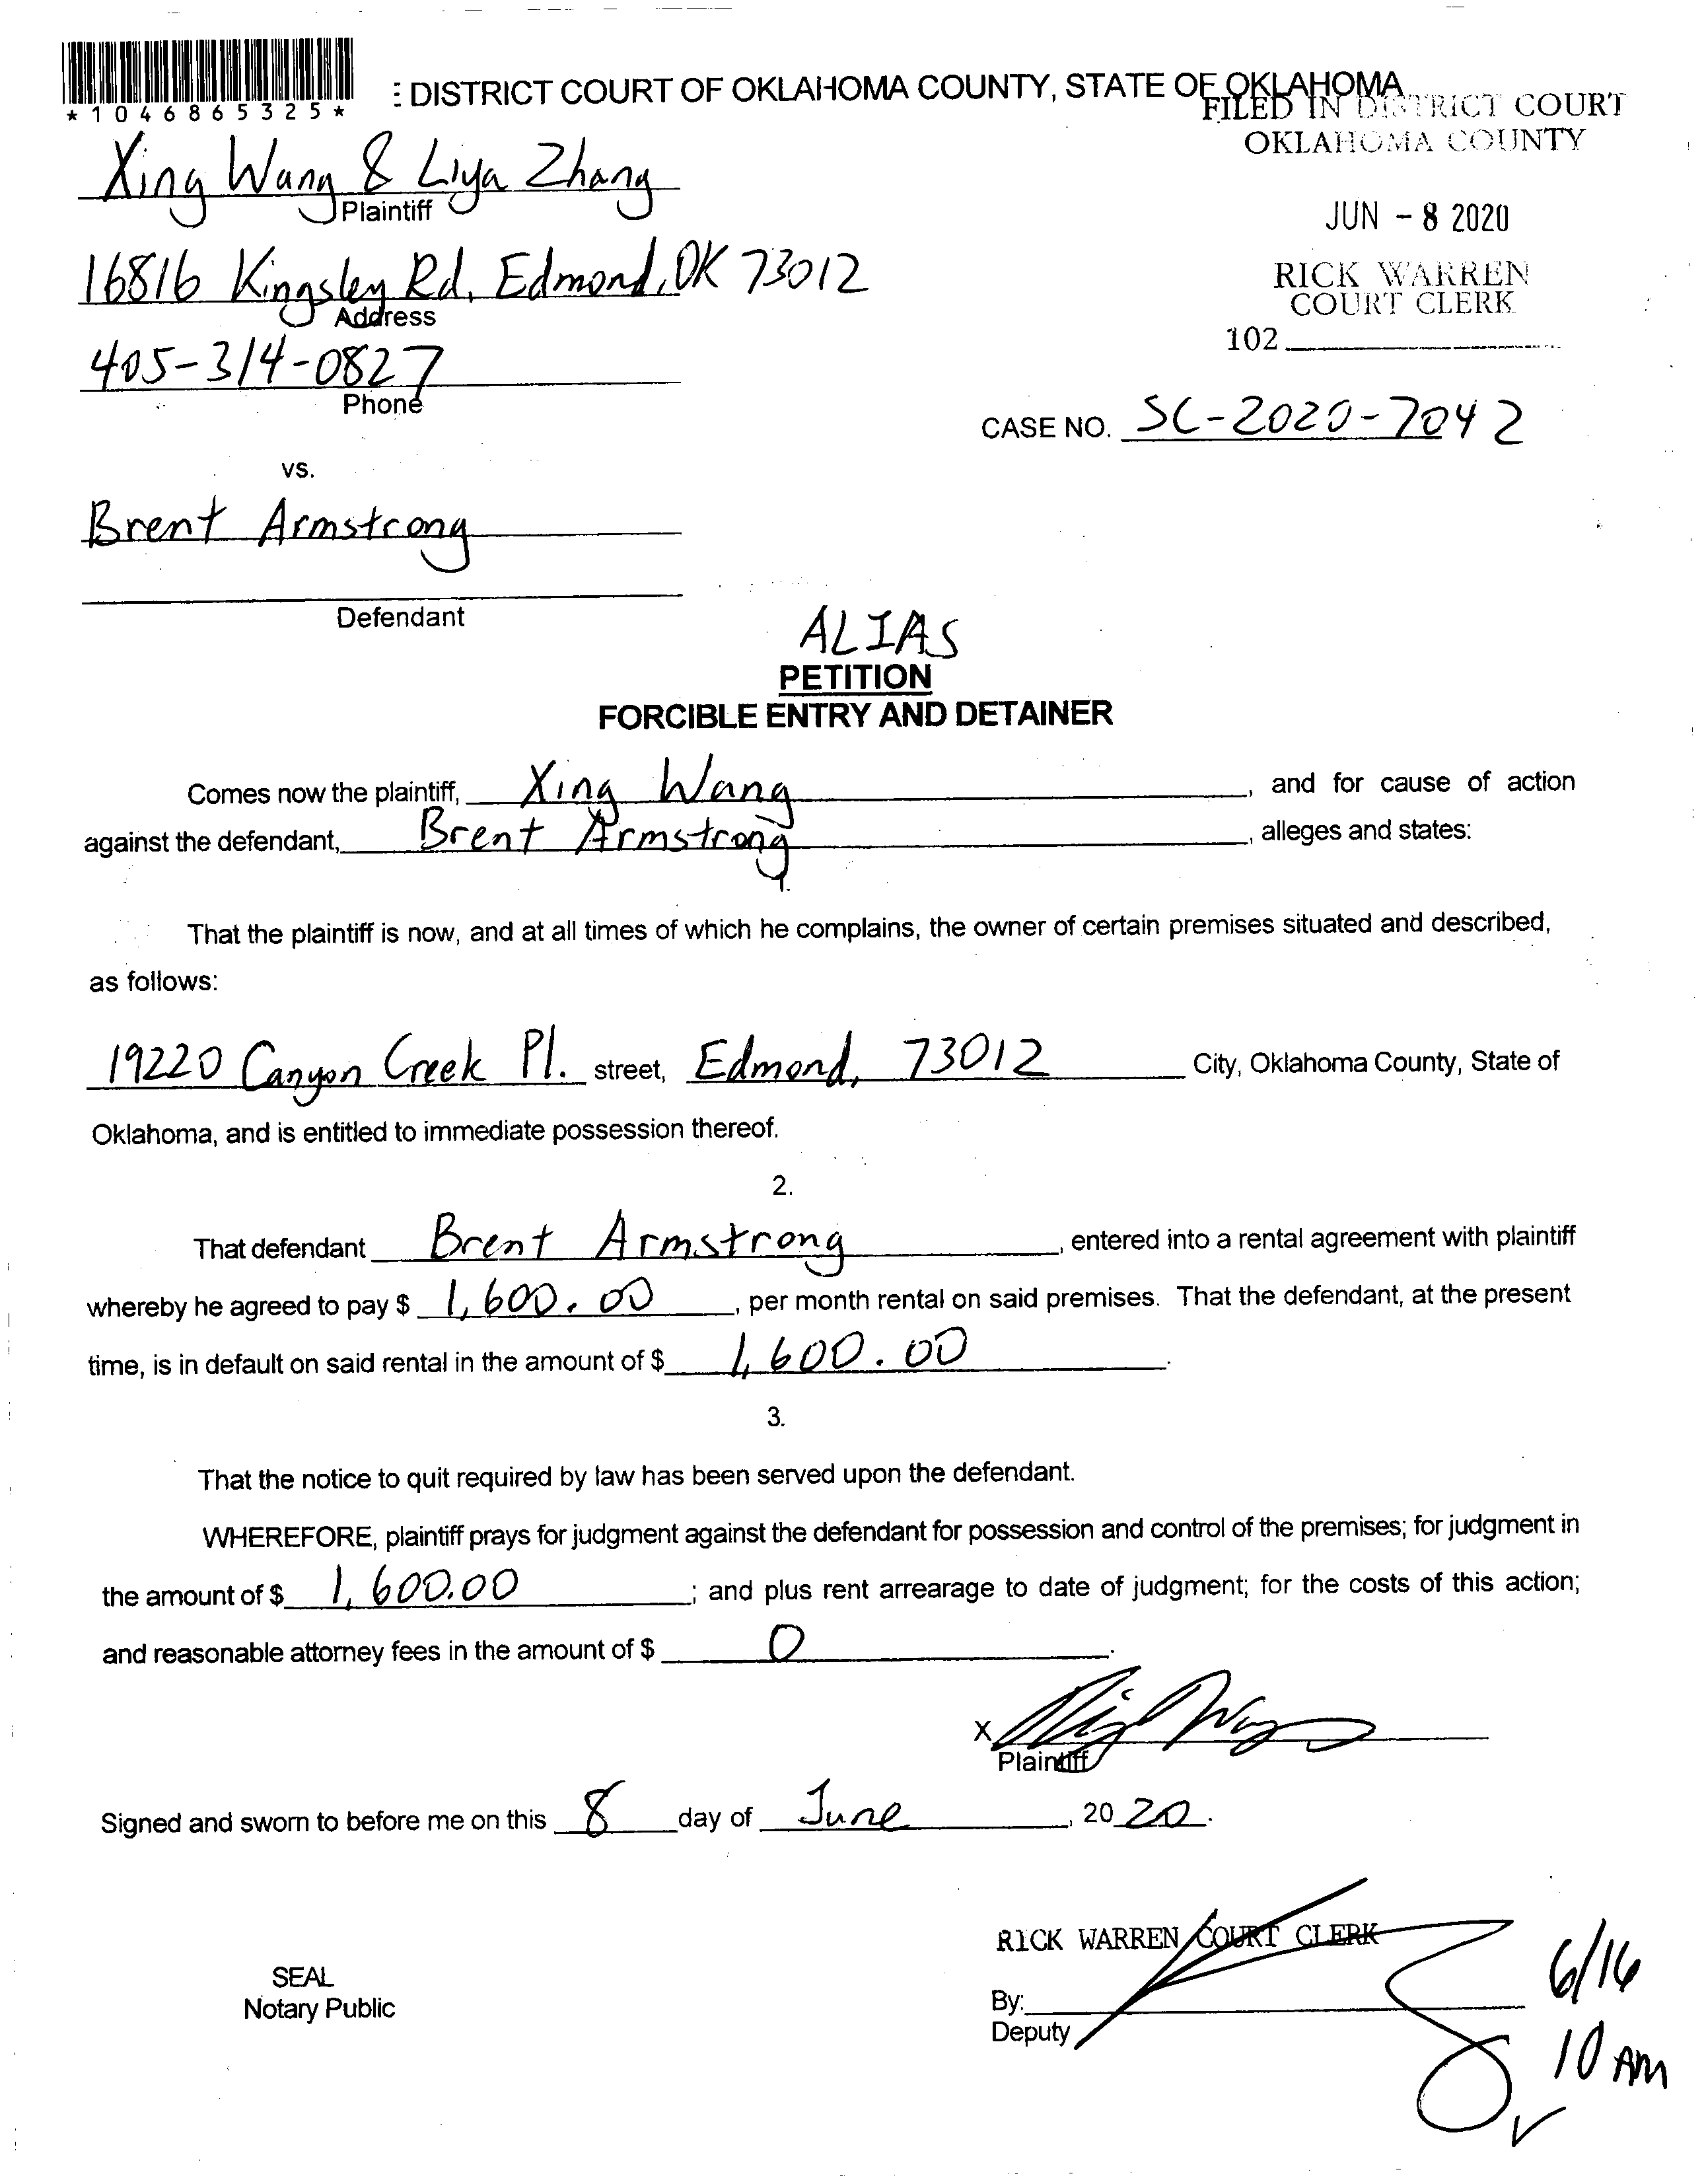 *1046865325*
: DISTRICT COURT OF OKLAHOMA COUNTY, STATE OF OKLAHOMA
FILED IN DISTRICT COURT
OKLAHOMA COUNTY
JUN - 8 2020
RICK WARREN
COURT CLERK
102
Xing Wang & Liya Zhang
Plaintiff
16816 Kingsley Rd, Edmond, OK 73012
Address
405-314-0827
Phone
CASE NO. SC-2020-7042
vs.
Brent Armstrong
Defendant
ALIAS
PETITION
FORCIBLE ENTRY AND DETAINER
Comes now the plaintiff, Xing Wang, and for cause of action
against the defendant, Brent Armstrong, alleges and states:
1.
That the plaintiff is now, and at all times of which he complains, the owner of certain premises situated and described,
as follows:
19220 Canyon Creek Pl. street, Edmond, 73012 City, Oklahoma County, State of
Oklahoma, and is entitled to immediate possession thereof.
2.
That defendant Brent Armstrong, entered into a rental agreement with plaintiff
whereby he agreed to pay $ 1,600.00, per month rental on said premises. That the defendant, at the present
time, is in default on said rental in the amount of $ 1,600.00.
3.
That the notice to quit required by law has been served upon the defendant.
WHEREFORE, plaintiff prays for judgment against the defendant for possession and control of the premises; for judgment in
the amount of $ 1,600.00; and plus rent arrearage to date of judgment; for the costs of this action;
and reasonable attorney fees in the amount of $ 0.
X
Plaintiff
Signed and sworn to before me on this 8 day of June, 20 20.
RICK WARREN COURT CLERK
SEAL
Notary Public
By:
Deputy
6/16
10 AM